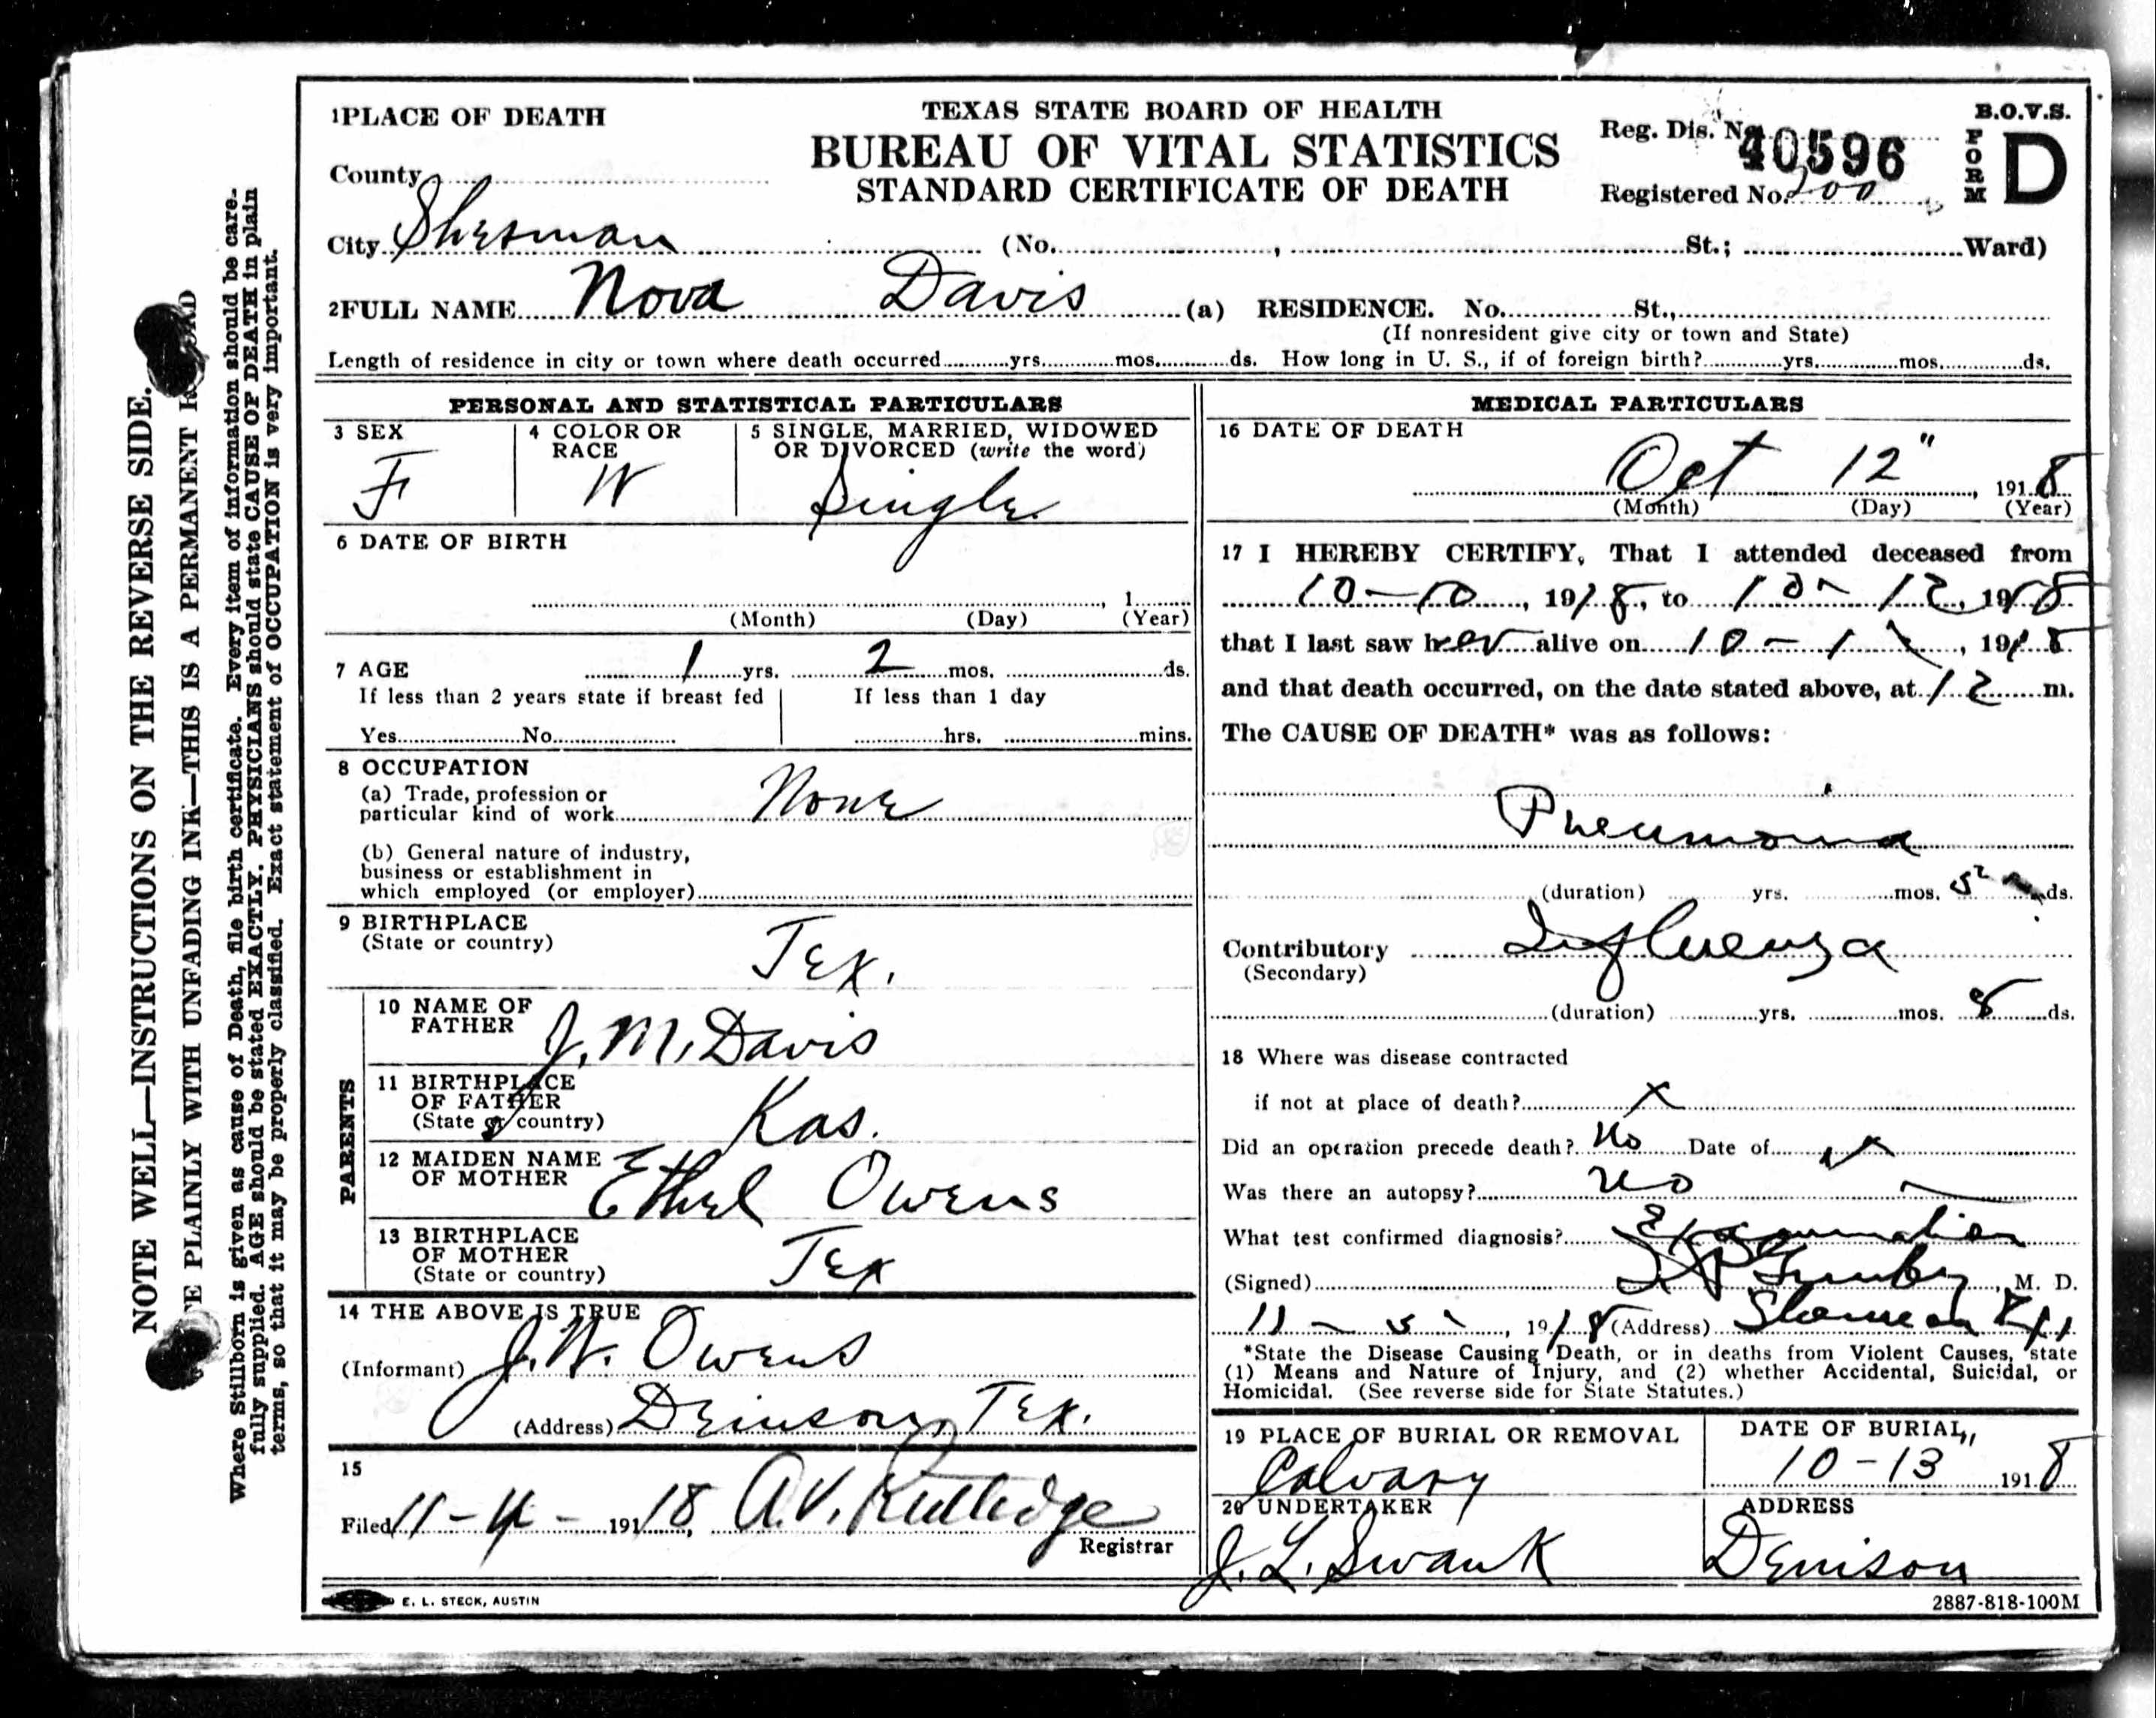 NOTE WELL—INSTRUCTIONS ON THE REVERSE SIDE.
PLAINLY WITH UNFADING INK—THIS IS A PERMANENT
Where Stillborn is given as cause of Death, file birth certificate. Every item of information should be care-
fully supplied. AGE should be stated EXACTLY. PHYSICIANS should state CAUSE OF DEATH in plain
terms, so that it may be properly classified. Exact statement of OCCUPATION is very important.
1 PLACE OF DEATH
TEXAS STATE BOARD OF HEALTH
BUREAU OF VITAL STATISTICS
STANDARD CERTIFICATE OF DEATH
Reg. Dis. No. 40596
Registered No. 200
B.O.V.S.
FORM D
County
City Sherman (No. , St.; Ward)
2 FULL NAME Nova Davis (a) RESIDENCE. No. St.,
(If nonresident give city or town and State)
Length of residence in city or town where death occurred yrs. mos. ds. How long in U. S., if of foreign birth? yrs. mos. ds.
PERSONAL AND STATISTICAL PARTICULARS
3 SEX
F
4 COLOR OR RACE
W
5 SINGLE, MARRIED, WIDOWED
OR DIVORCED (write the word)
Single
6 DATE OF BIRTH
, 1
(Month) (Day) (Year)
7 AGE 1 yrs. 2 mos. ds.
If less than 2 years state if breast fed
Yes No
If less than 1 day
hrs. mins.
8 OCCUPATION
(a) Trade, profession or
particular kind of work None
(b) General nature of industry,
business or establishment in
which employed (or employer)
9 BIRTHPLACE
(State or country) Tex.
PARENTS
10 NAME OF
FATHER J. M. Davis
11 BIRTHPLACE
OF FATHER
(State or country) Kas.
12 MAIDEN NAME
OF MOTHER Ethel Owens
13 BIRTHPLACE
OF MOTHER
(State or country) Tex
14 THE ABOVE IS TRUE
(Informant) J. W. Owens
(Address) Denison, Tex.
15
Filed 11-4- 1918, A.V. Rutledge
Registrar
E. L. STECK, AUSTIN
MEDICAL PARTICULARS
16 DATE OF DEATH
Oct 12" , 1918
(Month) (Day) (Year)
17 I HEREBY CERTIFY, That I attended deceased from
10-10, 1918, to 10-12, 1918
that I last saw her alive on 10-1 , 1918
and that death occurred, on the date stated above, at 12 m.
The CAUSE OF DEATH* was as follows:
Pneumonia
(duration) yrs. mos. 5 ds.
Contributory Influenza
(Secondary)
(duration) yrs. mos. 8 ds.
18 Where was disease contracted
if not at place of death? x
Did an operation precede death? no Date of x
Was there an autopsy? no
What test confirmed diagnosis? Examination
(Signed) , M. D.
11-5, 1918 (Address) Sherman
*State the Disease Causing Death, or in deaths from Violent Causes, state
(1) Means and Nature of Injury, and (2) whether Accidental, Suicidal, or
Homicidal. (See reverse side for State Statutes.)
19 PLACE OF BURIAL OR REMOVAL
Calvary
DATE OF BURIAL,
10-13 1918
20 UNDERTAKER
J. L. Swank
ADDRESS
Denison
2887-818-100M